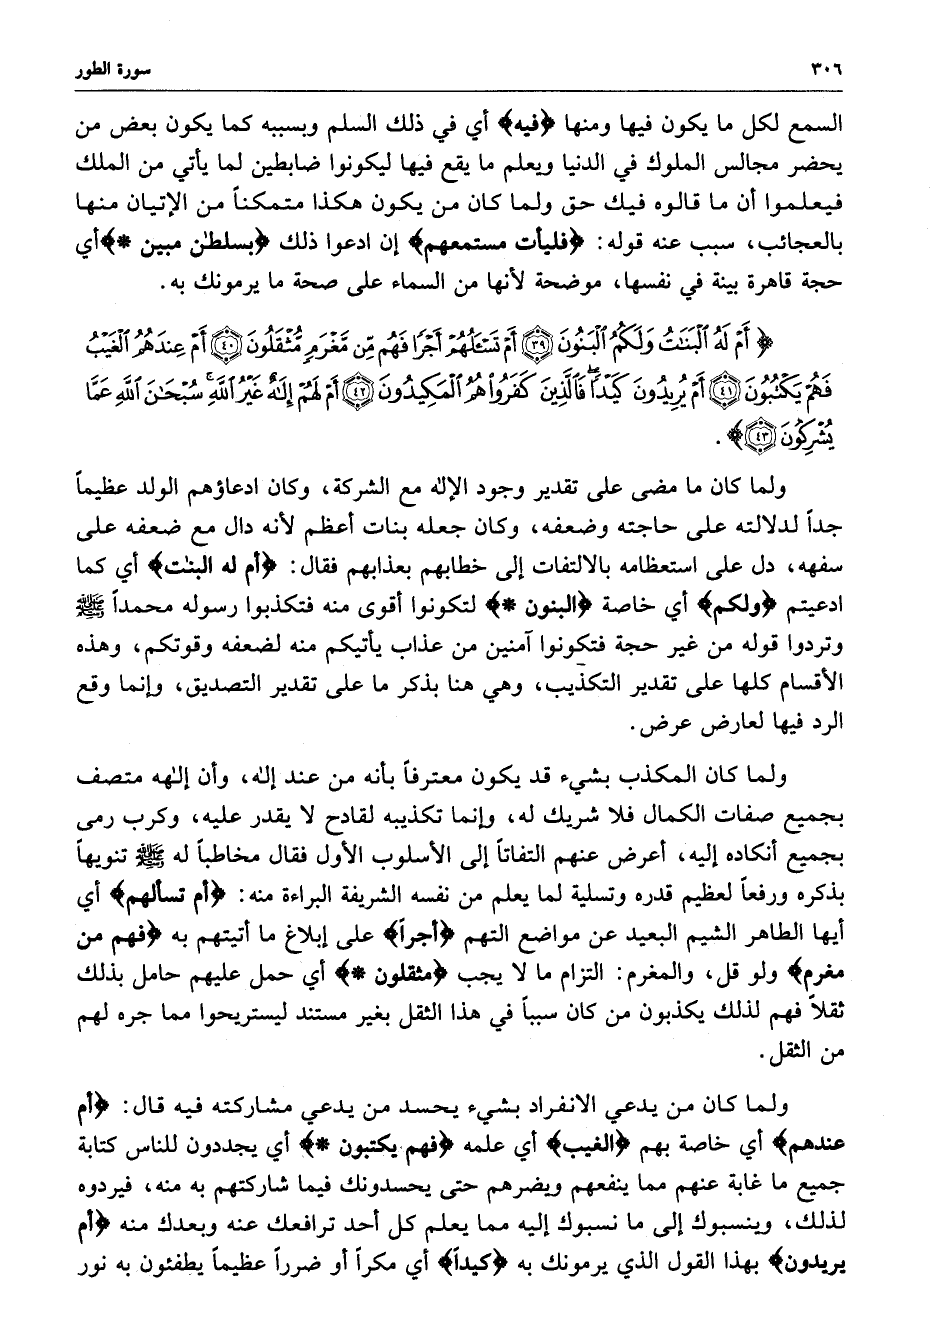 ٣٠٦ سورة الطور
السمع لكل ما يكون فيها ومنها ﴿فيه﴾ أي في ذلك السلم وبسببه كما يكون بعض من
يحضر مجالس الملوك في الدنيا ويعلم ما يقع فيها ليكونوا ضابطين لما يأتي من الملك
فيعلموا أن ما قالوه فيك حق ولما كان من يكون هكذا متمكناً من الإتيان منها
بالعجائب، سبب عنه قوله: ﴿فليأت مستمعهم﴾ إن ادعوا ذلك ﴿بسلطٰن مبين *﴾أي
حجة قاهرة بينة في نفسها، موضحة لأنها من السماء على صحة ما يرمونك به.
﴿ أَمْ لَهُ ٱلْبَنَٰتُ وَلَكُمُ ٱلْبَنُونَ ﴿٣٩﴾ أَمْ تَسْـَٔلُهُمْ أَجْرًا فَهُم مِّن مَّغْرَمٍ مُّثْقَلُونَ ﴿٤٠﴾ أَمْ عِندَهُمُ ٱلْغَيْبُ
فَهُمْ يَكْتُبُونَ ﴿٤١﴾ أَمْ يُرِيدُونَ كَيْدًا ۖ فَٱلَّذِينَ كَفَرُوا۟ هُمُ ٱلْمَكِيدُونَ ﴿٤٢﴾ أَمْ لَهُمْ إِلَٰهٌ غَيْرُ ٱللَّهِ ۚ سُبْحَٰنَ ٱللَّهِ عَمَّا
يُشْرِكُونَ ﴿٤٣﴾﴾.
ولما كان ما مضى على تقدير وجود الإلٰه مع الشركة، وكان ادعاؤهم الولد عظيماً
جداً لدلالته على حاجته وضعفه، وكان جعله بنات أعظم لأنه دال مع ضعفه على
سفهه، دل على استعظامه بالالتفات إلى خطابهم بعذابهم فقال: ﴿أم له البنٰت﴾ أي كما
ادعيتم ﴿ولكم﴾ أي خاصة ﴿البنون *﴾ لتكونوا أقوى منه فتكذبوا رسوله محمداً ﷺ
وتردوا قوله من غير حجة فتكونوا آمنين من عذاب يأتيكم منه لضعفه وقوتكم، وهذه
الأقسام كلها على تقدير التكذيب، وهي هنا بذكر ما على تقدير التصديق، وإنما وقع
الرد فيها لعارض عرض.
ولما كان المكذب بشيء قد يكون معترفاً بأنه من عند إلٰه، وأن إلٰهه متصف
بجميع صفات الكمال فلا شريك له، وإنما تكذيبه لقادح لا يقدر عليه، وكرب رمى
بجميع أنكاده إليه، أعرض عنهم التفاتاً إلى الأسلوب الأول فقال مخاطباً له ﷺ تنويهاً
بذكره ورفعاً لعظيم قدره وتسلية لما يعلم من نفسه الشريفة البراءة منه: ﴿أم تسألهم﴾ أي
أيها الطاهر الشيم البعيد عن مواضع التهم ﴿أجراً﴾ على إبلاغ ما أتيتهم به ﴿فهم من
مغرم﴾ ولو قل، والمغرم: التزام ما لا يجب ﴿مثقلون *﴾ أي حمل عليهم حامل بذلك
ثقلاً فهم لذلك يكذبون من كان سبباً في هذا الثقل بغير مستند ليستريحوا مما جره لهم
من الثقل.
ولما كان من يدعي الانفراد بشيء يحسد من يدعي مشاركته فيه قال: ﴿أم
عندهم﴾ أي خاصة بهم ﴿الغيب﴾ أي علمه ﴿فهم يكتبون *﴾ أي يجددون للناس كتابة
جميع ما غابة عنهم مما ينفعهم ويضرهم حتى يحسدونك فيما شاركتهم به منه، فيردوه
لذلك، وينسبوك إلى ما نسبوك إليه مما يعلم كل أحد ترافعك عنه وبعدك منه ﴿أم
يريدون﴾ بهذا القول الذي يرمونك به ﴿كيداً﴾ أي مكراً أو ضرراً عظيماً يطفئون به نور